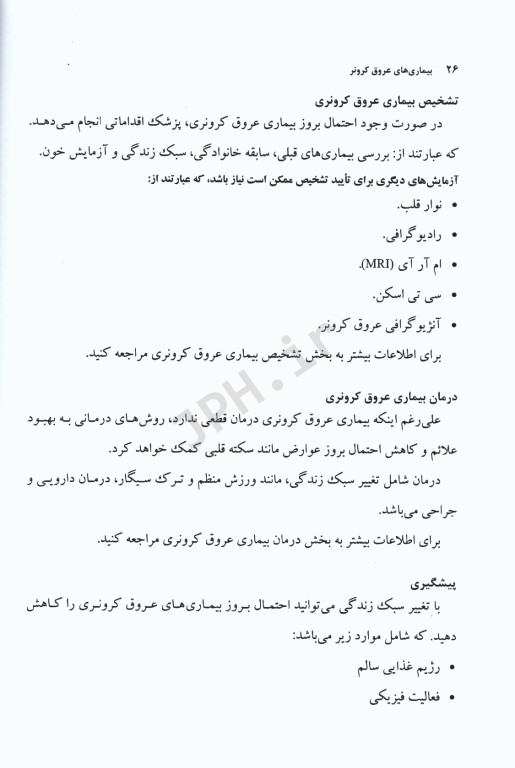 ۲۶ بیماری‌های عروق کرونر
تشخیص بیماری عروق کرونری
در صورت وجود احتمال بروز بیماری عروق کرونری، پزشک اقداماتی انجام می‌دهد.
که عبارتند از: بررسی بیماری‌های قبلی، سابقه خانوادگی، سبک زندگی و آزمایش خون.
آزمایش‌های دیگری برای تأیید تشخیص ممکن است نیاز باشد، که عبارتند از:
• نوار قلب.
• رادیوگرافی.
• ام آر آی (MRI).
• سی تی اسکن.
• آنژیوگرافی عروق کرونر.
برای اطلاعات بیشتر به بخش تشخیص بیماری عروق کرونری مراجعه کنید.
JPH.ir
درمان بیماری عروق کرونری
علی‌رغم اینکه بیماری عروق کرونری درمان قطعی ندارد، روش‌های درمانی به بهبود
علائم و کاهش احتمال بروز عوارض مانند سکته قلبی کمک خواهد کرد.
درمان شامل تغییر سبک زندگی، مانند ورزش منظم و ترک سیگار، درمان دارویی و
جراحی می‌باشد.
برای اطلاعات بیشتر به بخش درمان بیماری عروق کرونری مراجعه کنید.
پیشگیری
با تغییر سبک زندگی می‌توانید احتمال بروز بیماری‌های عروق کرونری را کاهش
دهید. که شامل موارد زیر می‌باشد:
• رژیم غذایی سالم
• فعالیت فیزیکی